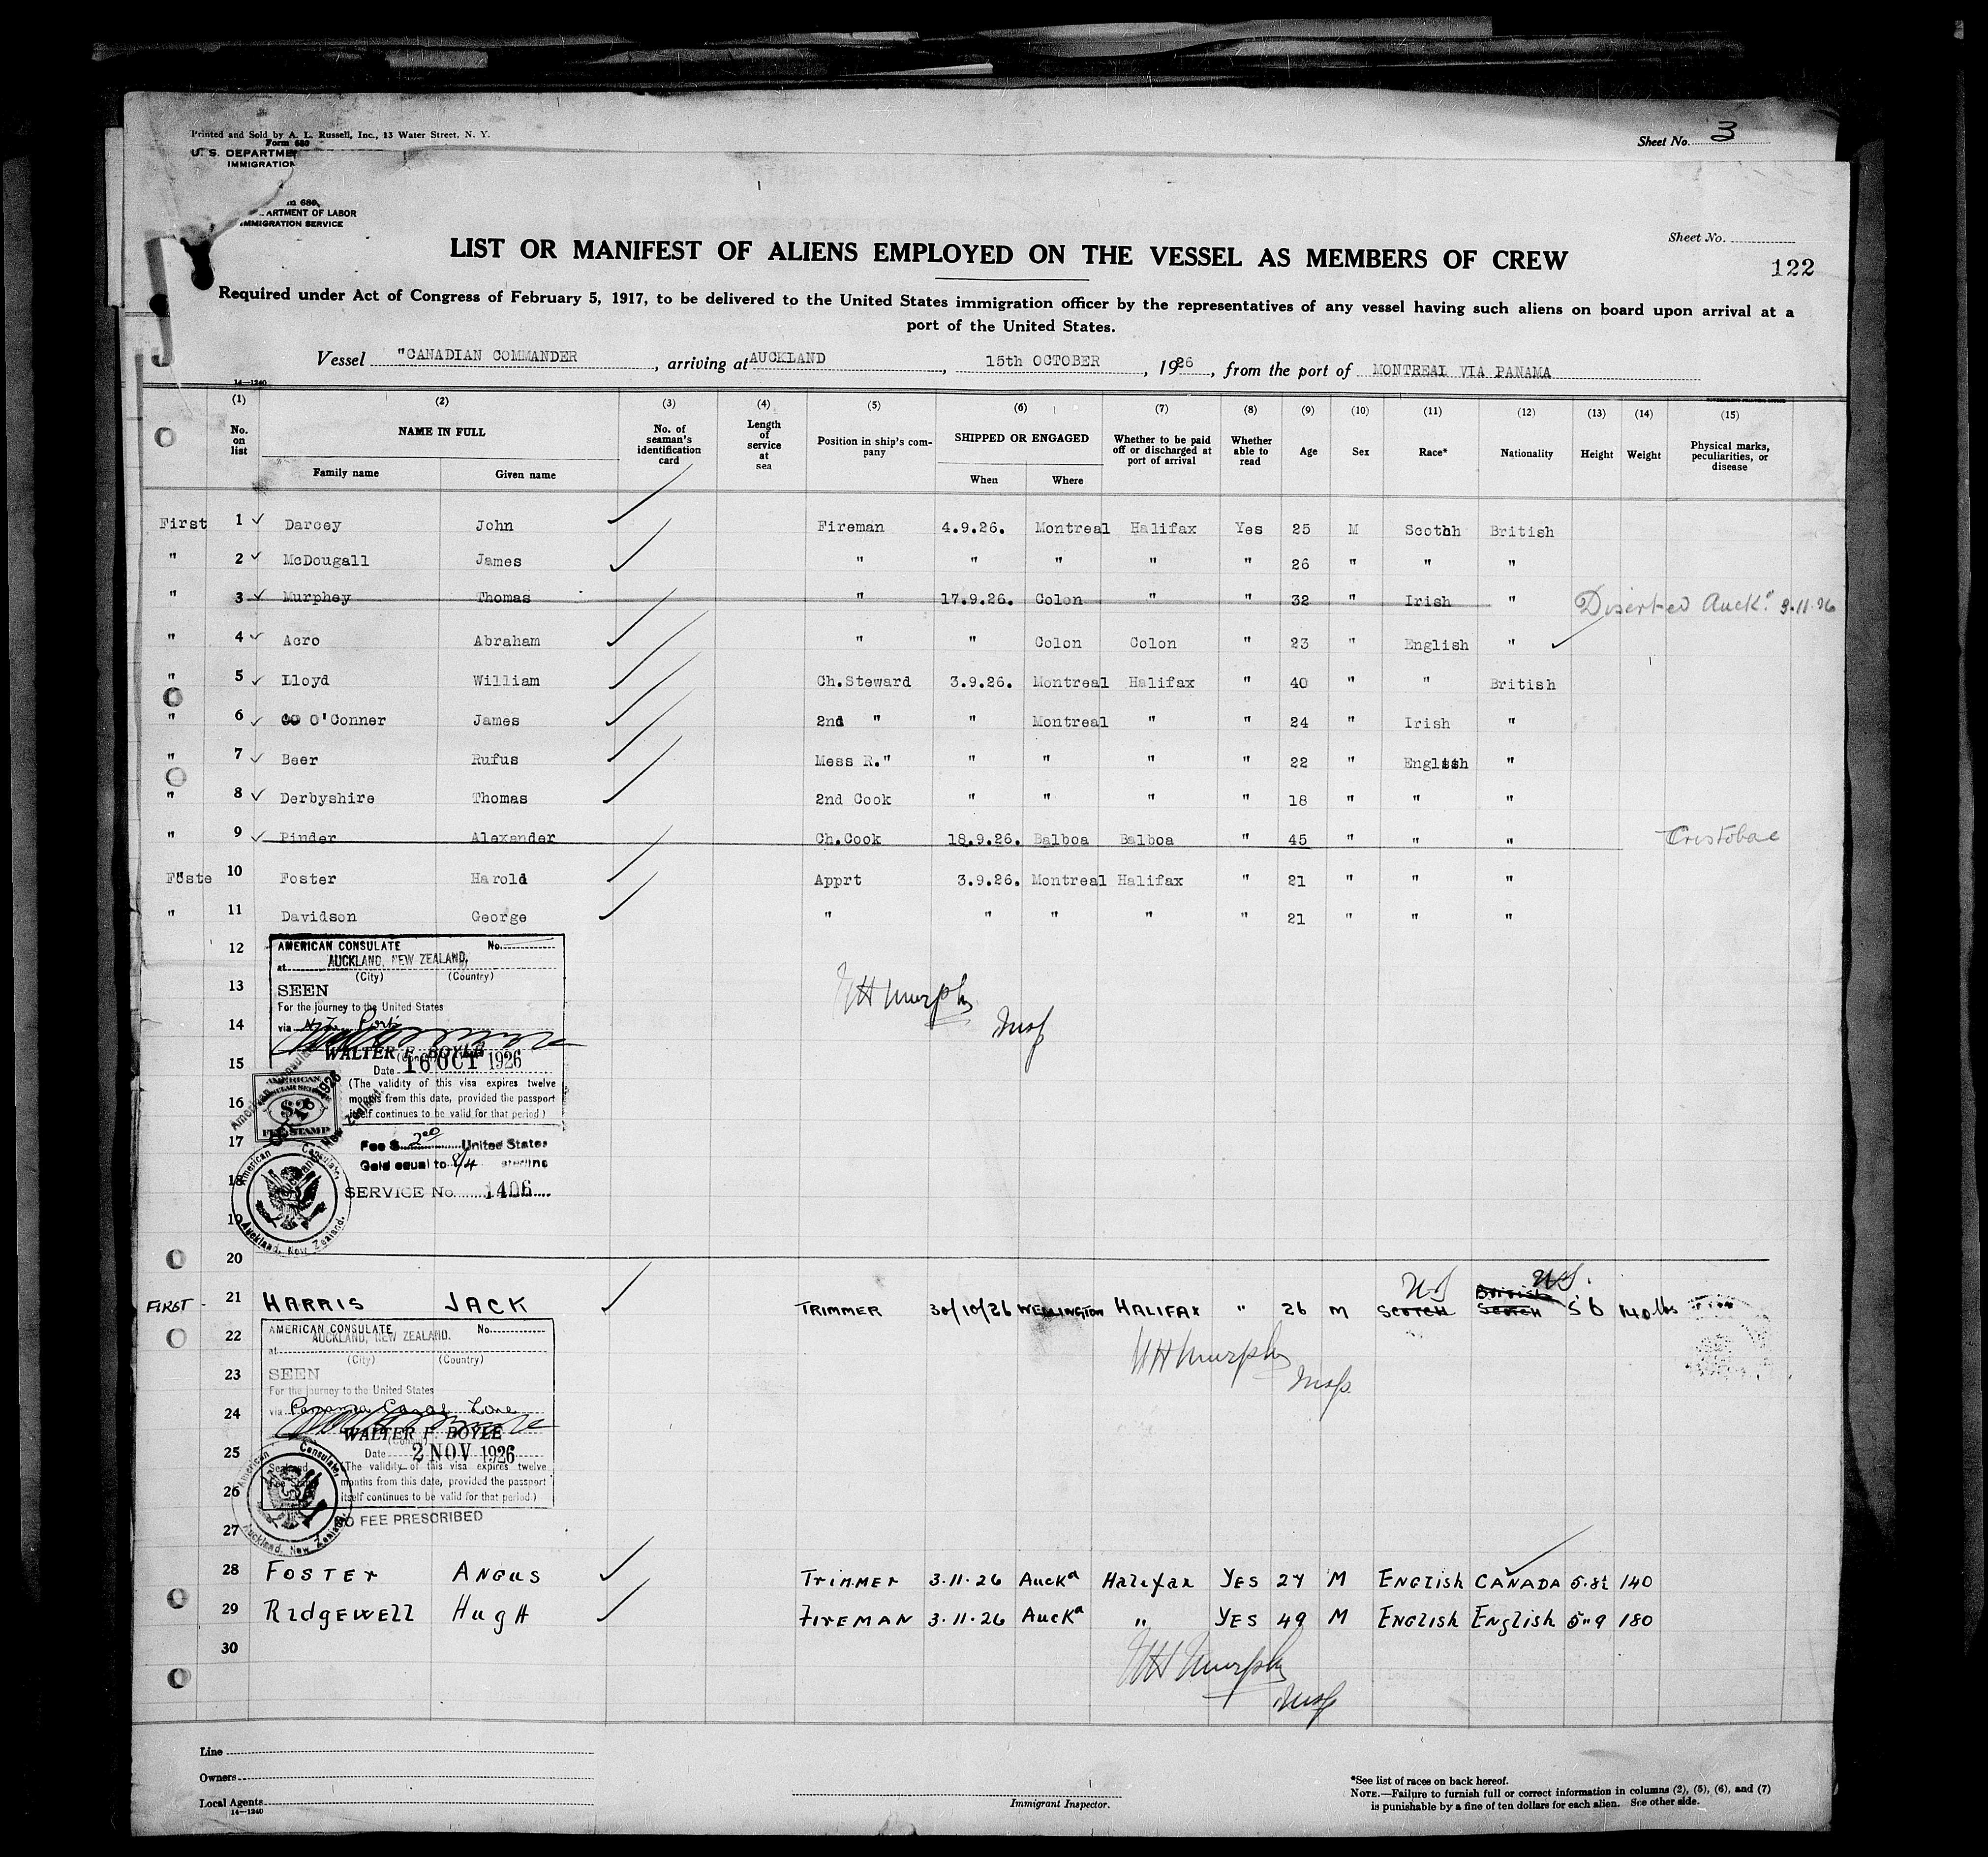 Printed and Sold by A. L. Russell, Inc., 13 Water Street, N. Y.
Form 680
U. S. DEPARTME
IMMIGRATION
Sheet No. 3
m 680
ARTMENT OF LABOR
IMMIGRATION SERVICE
Sheet No.
LIST OR MANIFEST OF ALIENS EMPLOYED ON THE VESSEL AS MEMBERS OF CREW
122
Required under Act of Congress of February 5, 1917, to be delivered to the United States immigration officer by the representatives of any vessel having such aliens on board upon arrival at a
port of the United States.
Vessel "CANADIAN COMMANDER, arriving at AUCKLAND, 15th OCTOBER, 1926, from the port of MONTREAL VIA PANAMA
14—1240
(1) (2) (3) (4) (5) (6) (7) (8) (9) (10) (11) (12) (13) (14) (15)
No. on list NAME IN FULL Family name Given name No. of seaman's identification card Length of service at sea Position in ship's company SHIPPED OR ENGAGED When Where Whether to be paid off or discharged at port of arrival Whether able to read Age Sex Race* Nationality Height Weight Physical marks, peculiarities, or disease
First 1 Darcey John Fireman 4.9.26. Montreal Halifax Yes 25 M Scotch British
" 2 McDougall James " " " " " 26 " " "
" 3 Murphey Thomas " 17.9.26. Colon " " 32 " Irish " Diserted Auckd 3.11.26
" 4 Acro Abraham " " Colon Colon " 23 " English "
" 5 Lloyd William Ch.Steward 3.9.26. Montreal Halifax " 40 " " British
" 6 O'Conner James 2nd " " Montreal " " 24 " Irish "
" 7 Beer Rufus Mess R." " " " " 22 " English "
" 8 Derbyshire Thomas 2nd Cook " " " " 18 " " "
" 9 Pinder Alexander Ch.Cook 18.9.26. Balboa Balboa " 45 " " " Cristobal
Foste 10 Foster Harold Apprt 3.9.26. Montreal Halifax " 21 " " "
" 11 Davidson George " " " " " 21 " " "
12
AMERICAN CONSULATE No.
at AUCKLAND, NEW ZEALAND,
(City) (Country)
13
SEEN
W H Murphy
Insp
For the journey to the United States
14
via
WALTER F. BOYLE
15
Date 16 OCT 1926
(The validity of this visa expires twelve
16
months from this date, provided the passport
itself continues to be valid for that period.)
AMERICAN CONSULAR SERVICE
$2
FEE STAMP
17
Fee $ 2.00 United States
Gold equal to 8/4 sterling
18
SERVICE No. 1406
American Consulate, Auckland, New Zealand.
19
20
FIRST 21 HARRIS JACK TRIMMER 30/10/26 WELLINGTON HALIFAX " 26 M SCOTCH US British SCOTCH US. 5' 6 140 lbs
22
AMERICAN CONSULATE No.
at AUCKLAND, NEW ZEALAND.
(City) (Country)
W H Murphy
Insp
23
SEEN
For the journey to the United States
24
via Panama Canal Zone
WALTER F. BOYLE
25
Date 2 NOV 1926
(The validity of this visa expires twelve
26
months from this date, provided the passport
itself continues to be valid for that period.)
American Consulate, Auckland, New Zealand.
NO FEE PRESCRIBED
27
28 FOSTER ANGUS TRIMMER 3.11.26 Auckd Halifax YES 27 M ENGLISH CANADA 5.8½ 140
29 RIDGEWELL HugH FIREMAN 3.11.26 Auckd " YES 49 M ENGLISH English 5"9 180
30
W H Murphy
Insp
Line
Owners
Local Agents
14—1240
Immigrant Inspector.
*See list of races on back hereof.
NOTE.—Failure to furnish full or correct information in columns (2), (5), (6), and (7)
is punishable by a fine of ten dollars for each alien. See other side.